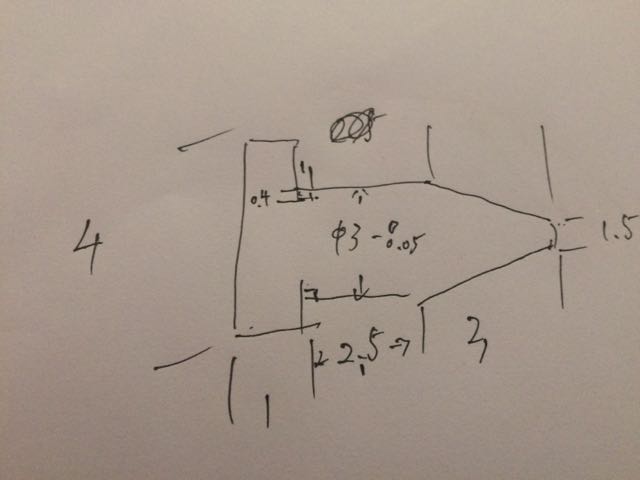 0.4
4
φ3-0 0.05
1.5
2.5
3
1